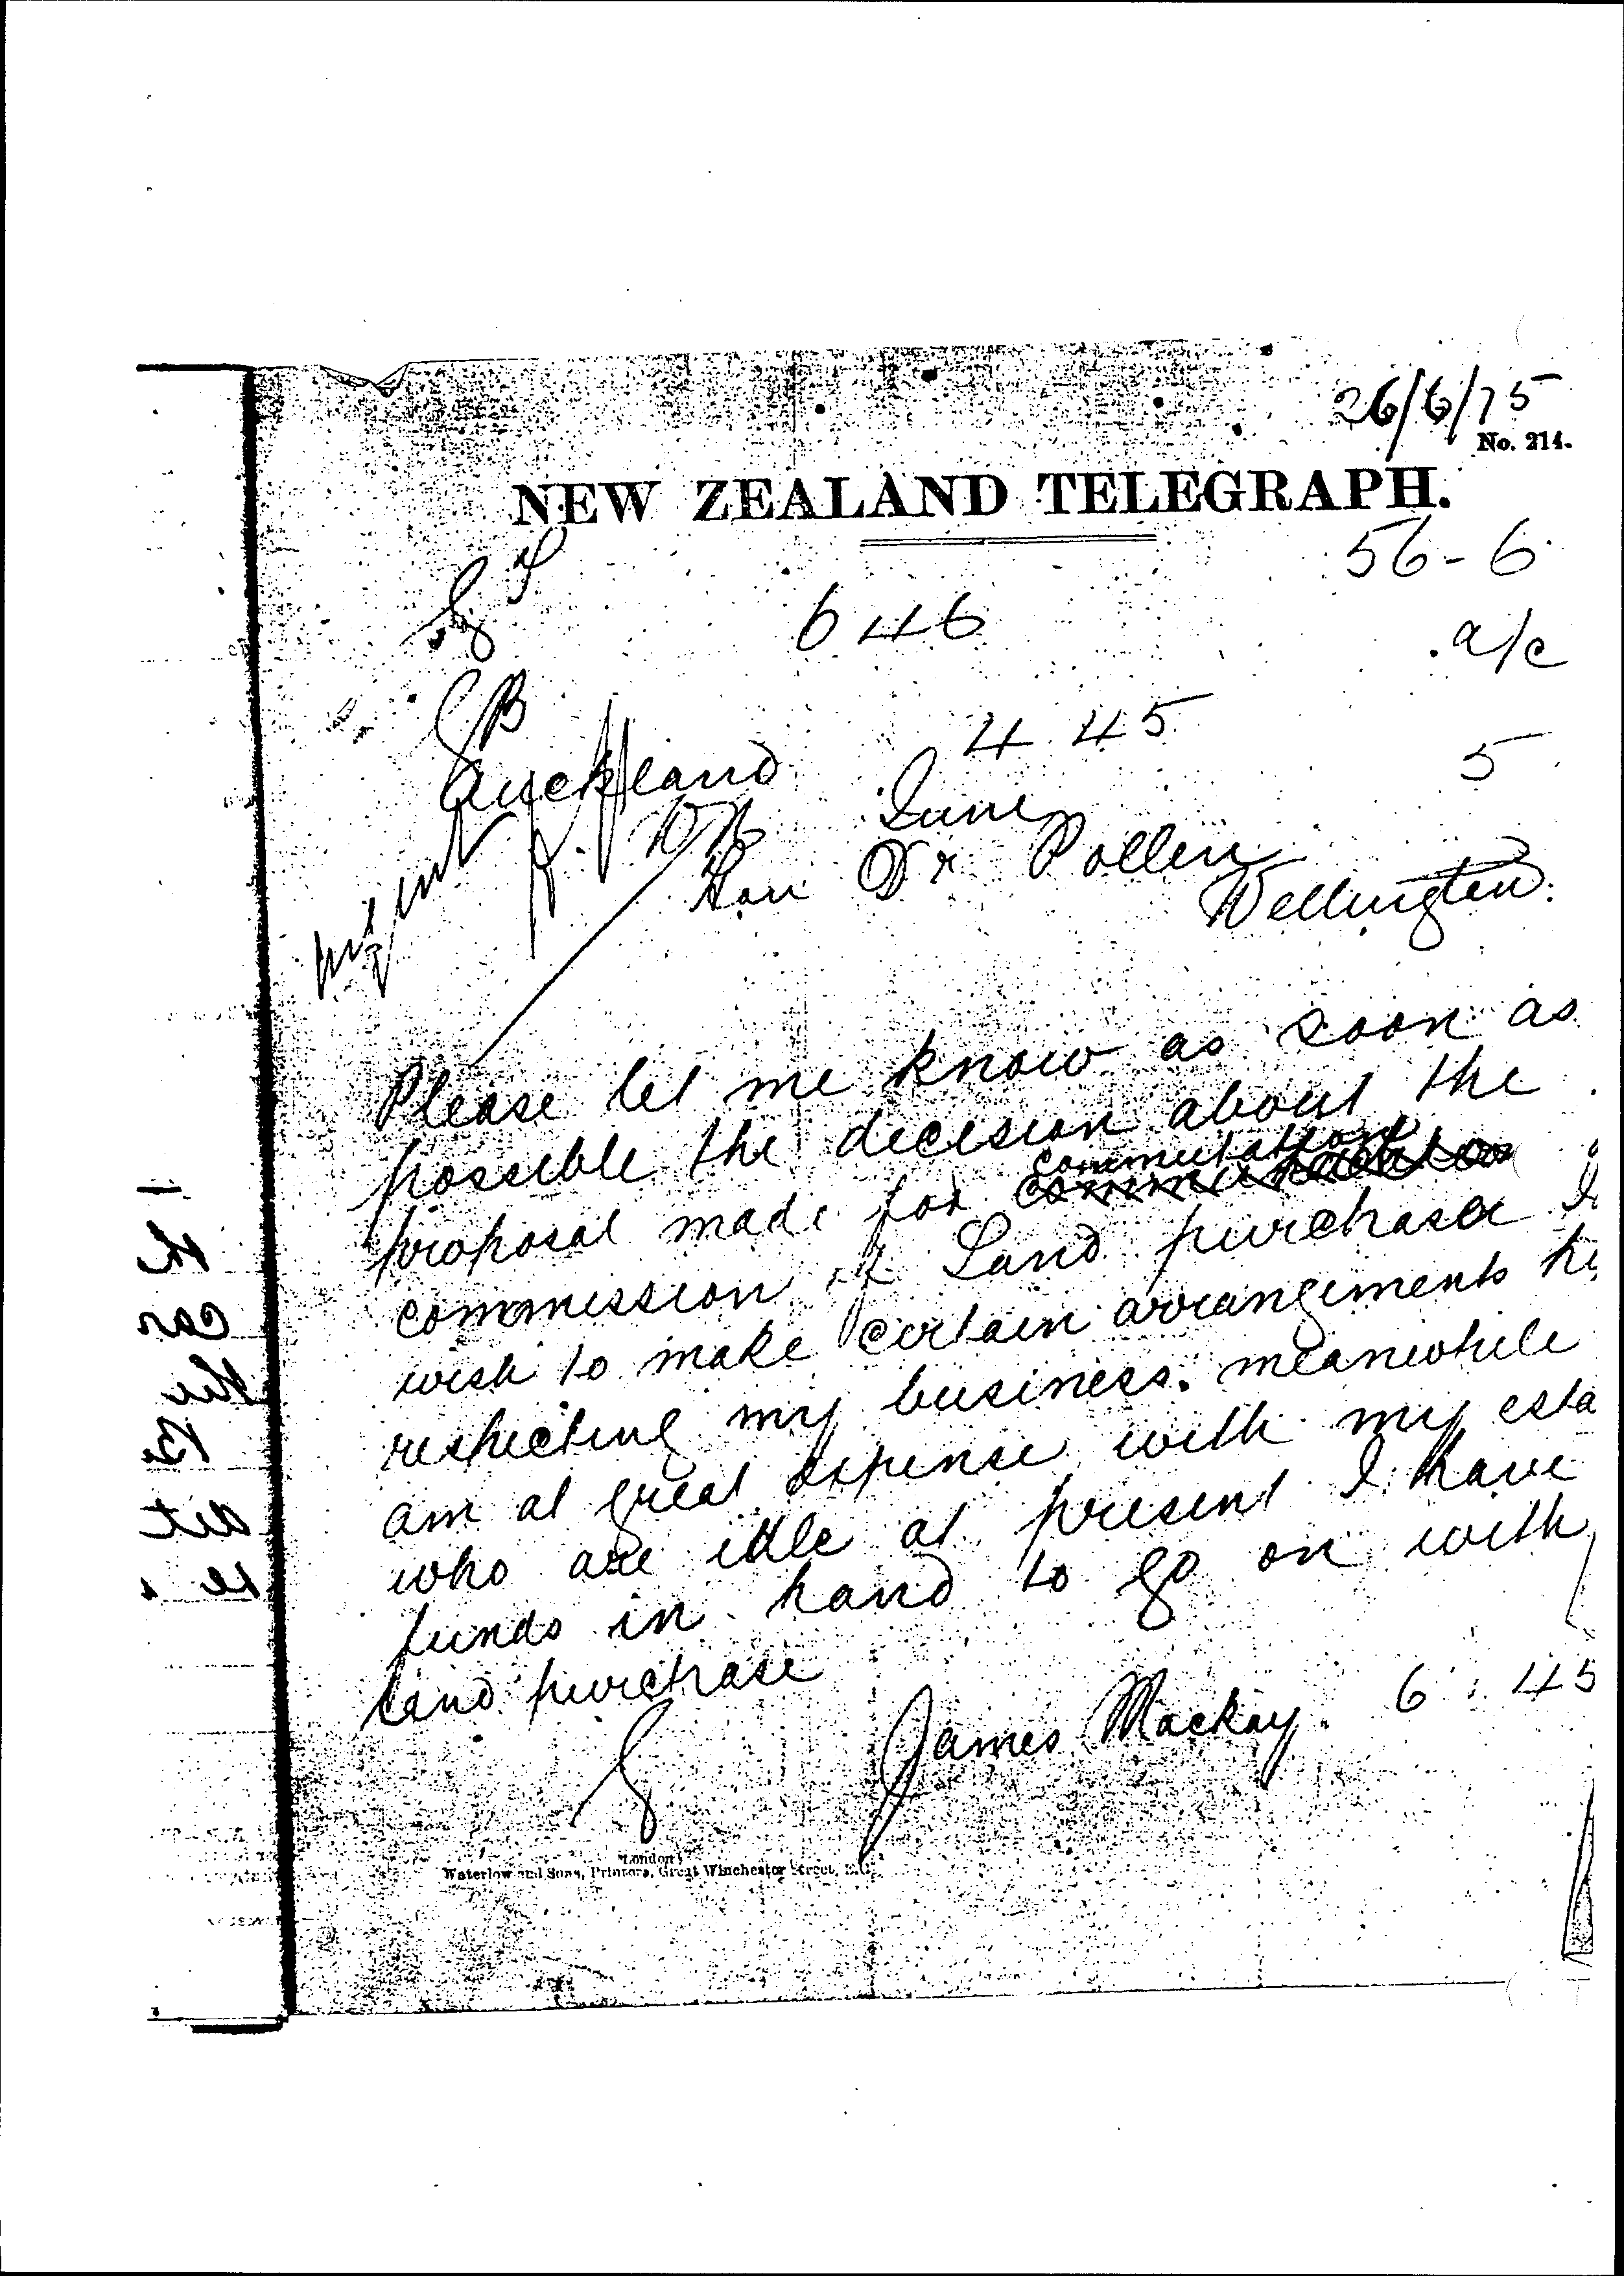 26/6/75
No. 214.
NEW ZEALAND TELEGRAPH.
56-6
646
a/c
4.45
Auckland
5
June
Hon Dr Pollen
Wellington.
urgent
Please let me know as soon as
possible the decision about the
commutation
proposal made for
commission of Land purchaser I
wish to make certain arrangements
respecting my business. meanwhile
am at great expense with my esta
who are idle at present I have
funds in hand to go on with
land purchase
James Mackay. 6.45
London:
Waterlow and Sons, Printers, Great Winchester Street, E.C.